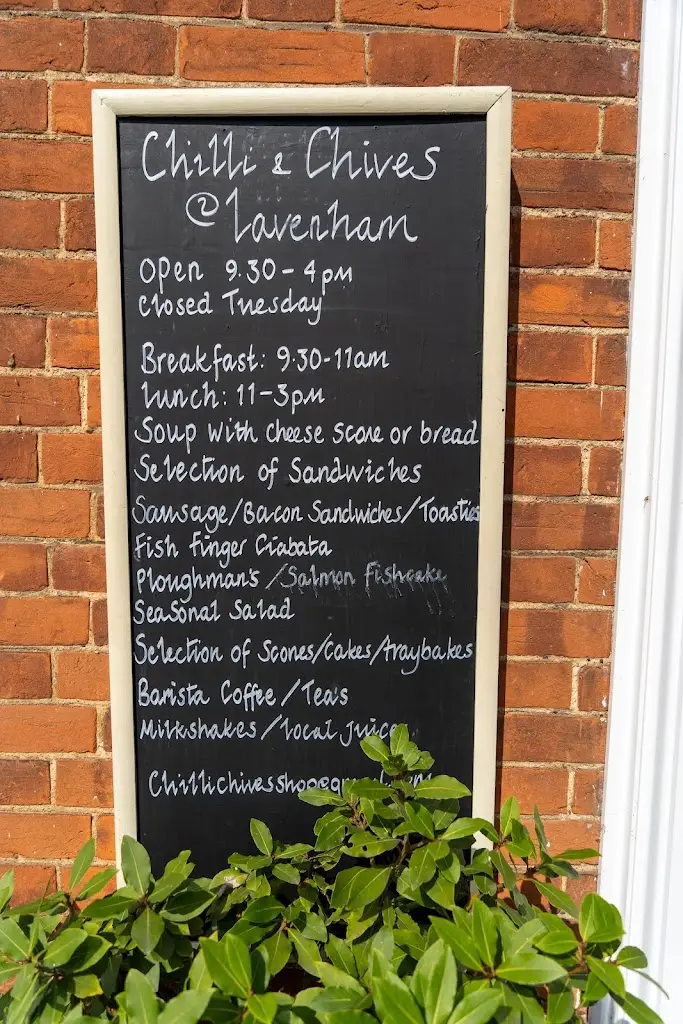 Chilli & Chives
@ Lavenham
Open 9.30-4pm
Closed Tuesday
Breakfast: 9.30-11am
Lunch: 11-3pm
Soup with cheese scone or bread
Selection of Sandwiches
Sausage/Bacon Sandwiches/Toasties
Fish Finger Ciabata
Ploughman's / Salmon Fishcake
Seasonal Salad
Selection of Scones/Cakes/traybakes
Barista Coffee / Tea's
Milkshakes / Local juice